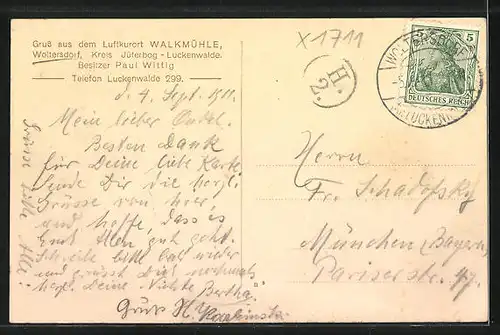 Gruß aus dem Luftkurort WALKMÜHLE,
Woltersdorf, Kreis Jüterbog-Luckenwalde.
Besitzer Paul Wittig
Telefon Luckenwalde 299.
d. 4. Sept. 1911.
Mein lieber Onkel.
Besten Dank
für Deine liebe Karte
sende Dir die herzl.
Grüsse von hier,
und hoffe, dass es
Euch Allen gut geht.
Schreibe bitte bald wieder
und grüsst Dich nochmals
herzl. Deine Nichte Bertha.
Gruss H.
X 1711
H.
2.
5
DEUTSCHES REICH
WOLTERSDORF
LUCKENW
Herrn
Fr. Schadofsky
München (Bayern)
Pariserstr. 47.